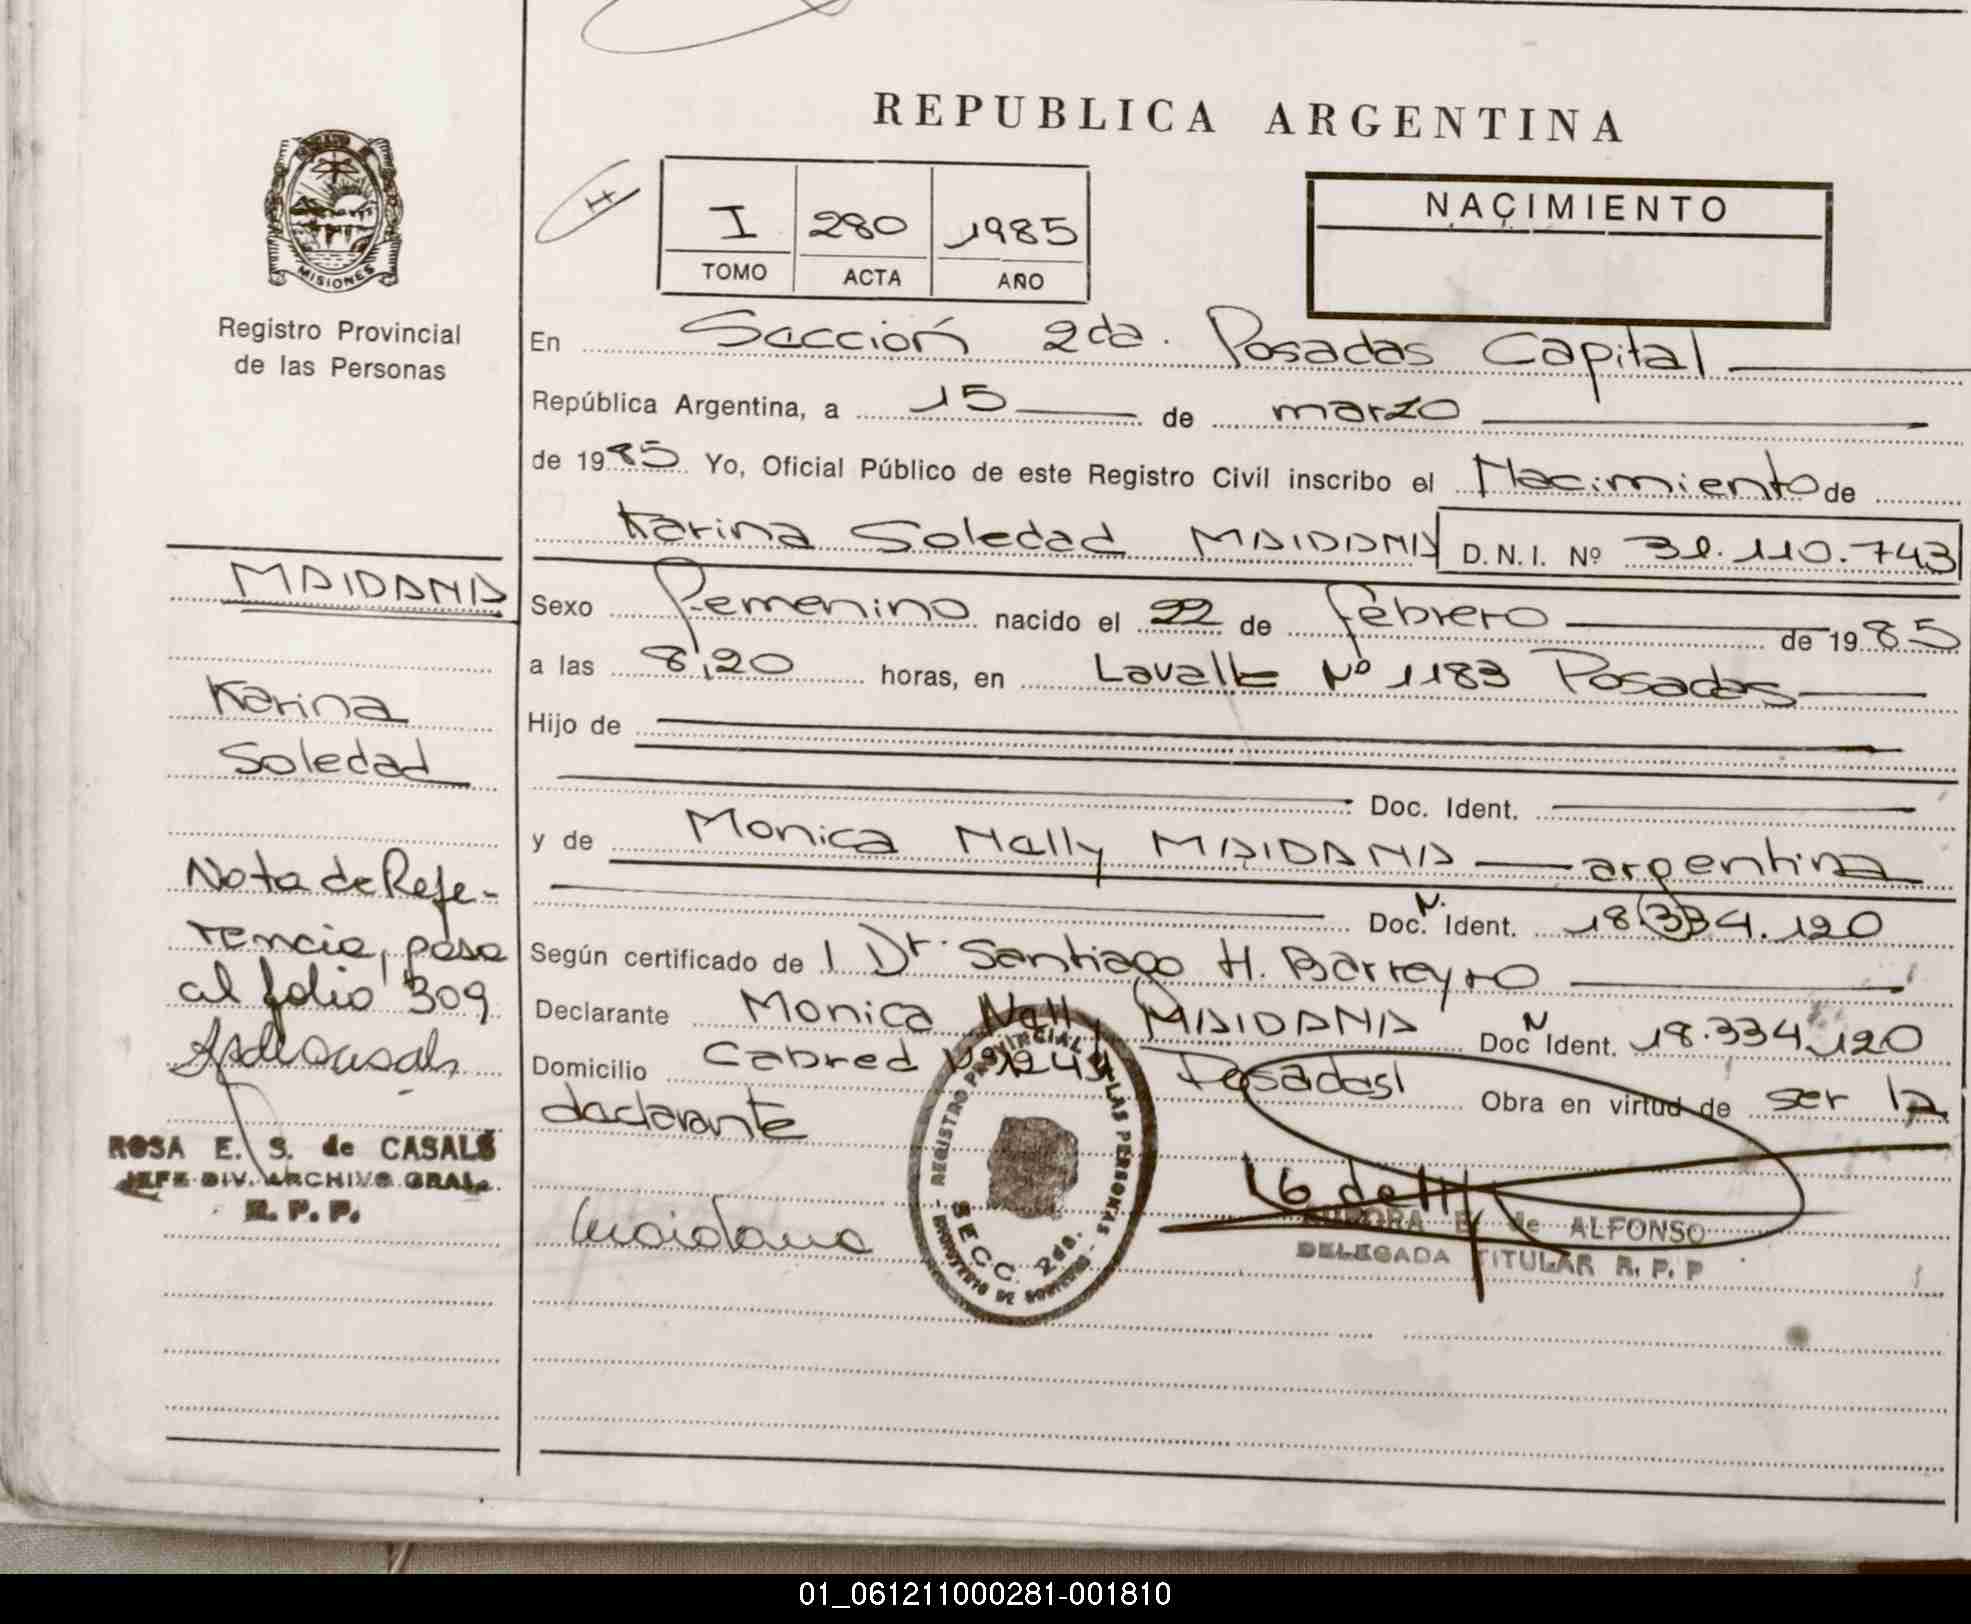 REPUBLICA ARGENTINA
MISIONES
Registro Provincial
de las Personas
H
I 280 1985
TOMO ACTA AÑO
NACIMIENTO
En Sección 2da. Posadas Capital
República Argentina, a 15 de marzo
de 1985 Yo, Oficial Público de este Registro Civil inscribo el Nacimiento de
Karina Soledad MAIDANA D.N.I. Nº 31.110.743
Sexo Femenino nacido el 22 de febrero de 1985
a las 8,20 horas, en Lavalle Nº 1183 Posadas
Hijo de
Doc. Ident.
y de Monica Nelly MAIDANA argentina
Doc. N. Ident. 18.334.120
Según certificado de l Dr. Santiago H. Barreyro
Declarante Monica Nelly MAIDANA Doc N Ident. 18.334.120
Domicilio Cabred Posadas Obra en virtud de ser la
declarante
MAIDANA
Karina
Soledad
Nota de Refe-
rencia, pasa
al folio 309
ROSA E. S. de CASALS
JEFE DIV. ARCHIVO GRAL.
R. P. P.
Maidana
REGISTRO PROVINCIAL DE LAS PERSONAS
SECC. 2da.
AURORA E. de ALFONSO
DELEGADA TITULAR R. P. P
01_061211000281-001810